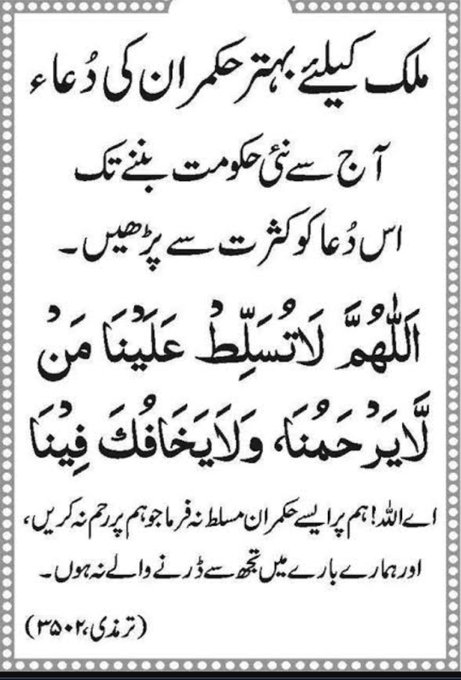 ملک کیلئے بہتر حکمران کی دُعاء
آج سے نئی حکومت بننے تک
اس دُعا کو کثرت سے پڑھیں۔
اَللّٰهُمَّ لَا تُسَلِّطْ عَلَيْنَا مَنْ
لَّا يَرْحَمُنَا، وَلَا يَخَافُكَ فِيْنَا
اے اللہ! ہم پر ایسے حکمران مسلط نہ فرما جو ہم پر رحم نہ کریں،
اور ہمارے بارے میں تجھ سے ڈرنے والے نہ ہوں۔
(ترمذی، ۳۵۰۲)